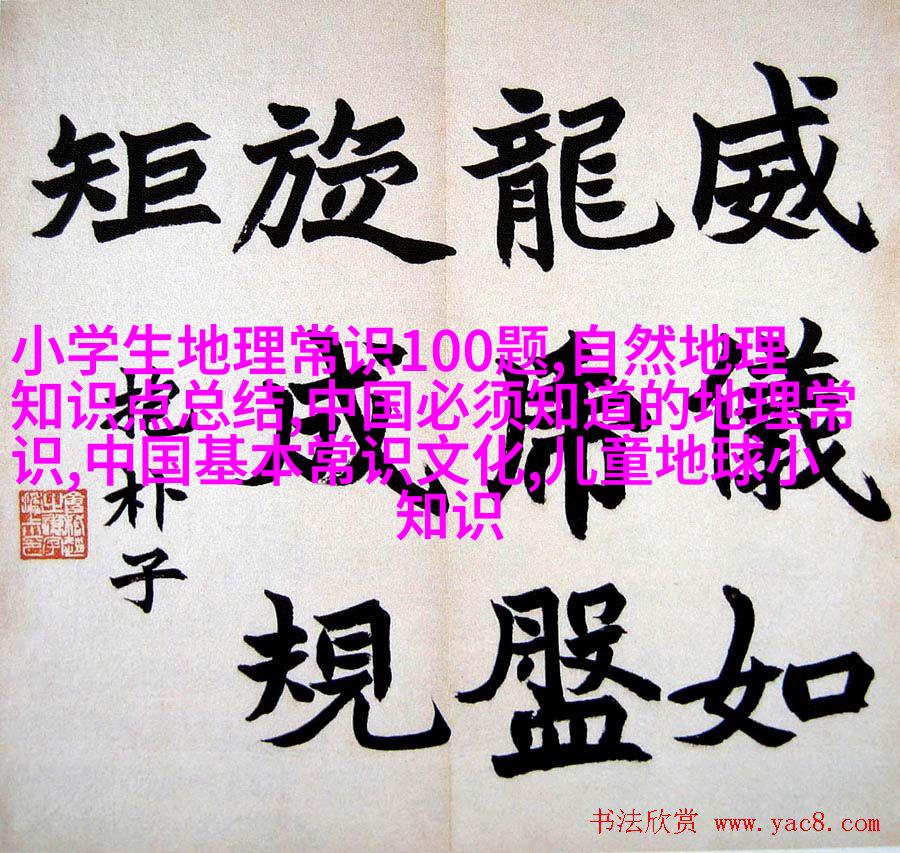 威儀如
龍虎盤
旋成規
矩
抱朴子
小学生地理常识100题,自然地理
知识点总结,中国必须知道的地理常
识,中国基本常识文化,儿童地球小
知识
书法欣赏 www.yac8.com